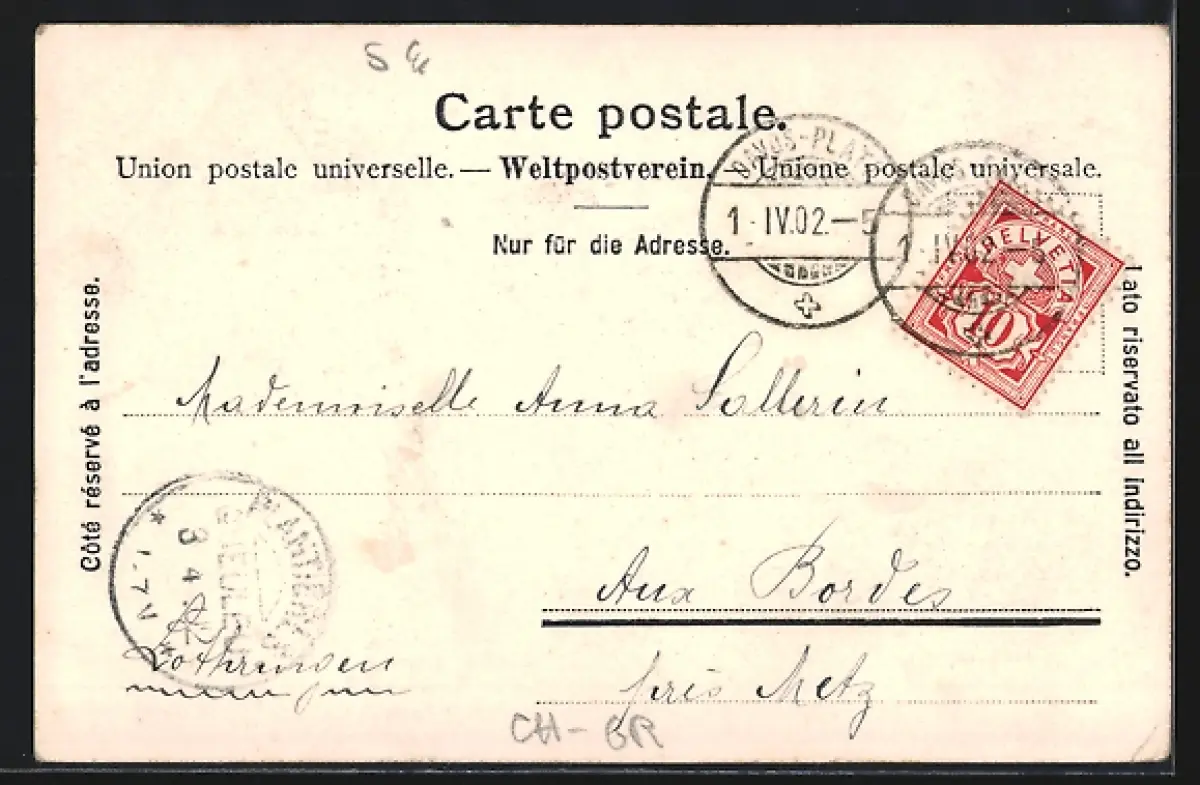 5 €
Carte postale.
Union postale universelle. — Weltpostverein. — Unione postale universale.
Nur für die Adresse.
DAVOS-PLATZ
1·IV.02.–5
1·IV.02.–5
HELVETIA
10
Côté réservé à l'adresse.
Lato riservato all indirizzo.
Mademoiselle Anna Sallerin
Aux Bordes
près Metz
PLANTIERES
3 4
Lothringen
CH-GR